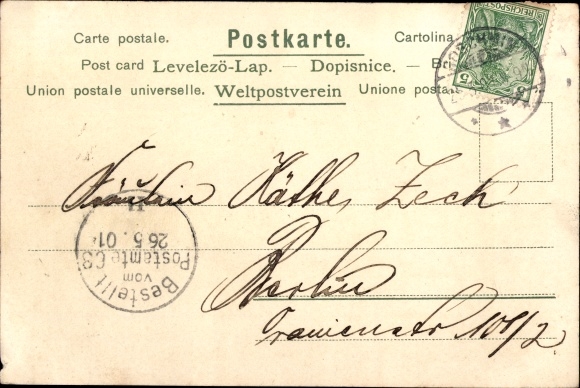 Carte postale. Postkarte. Cartolina
Post card Levelezö-Lap. — Dopisnice. — Br
Union postale universelle. Weltpostverein Unione posta
REICHSPOST
5 5
Fräulein Käthe Zeck
Berlin
Oranienstr 101/2
Bestellt
vom
Postamte
26.5.01